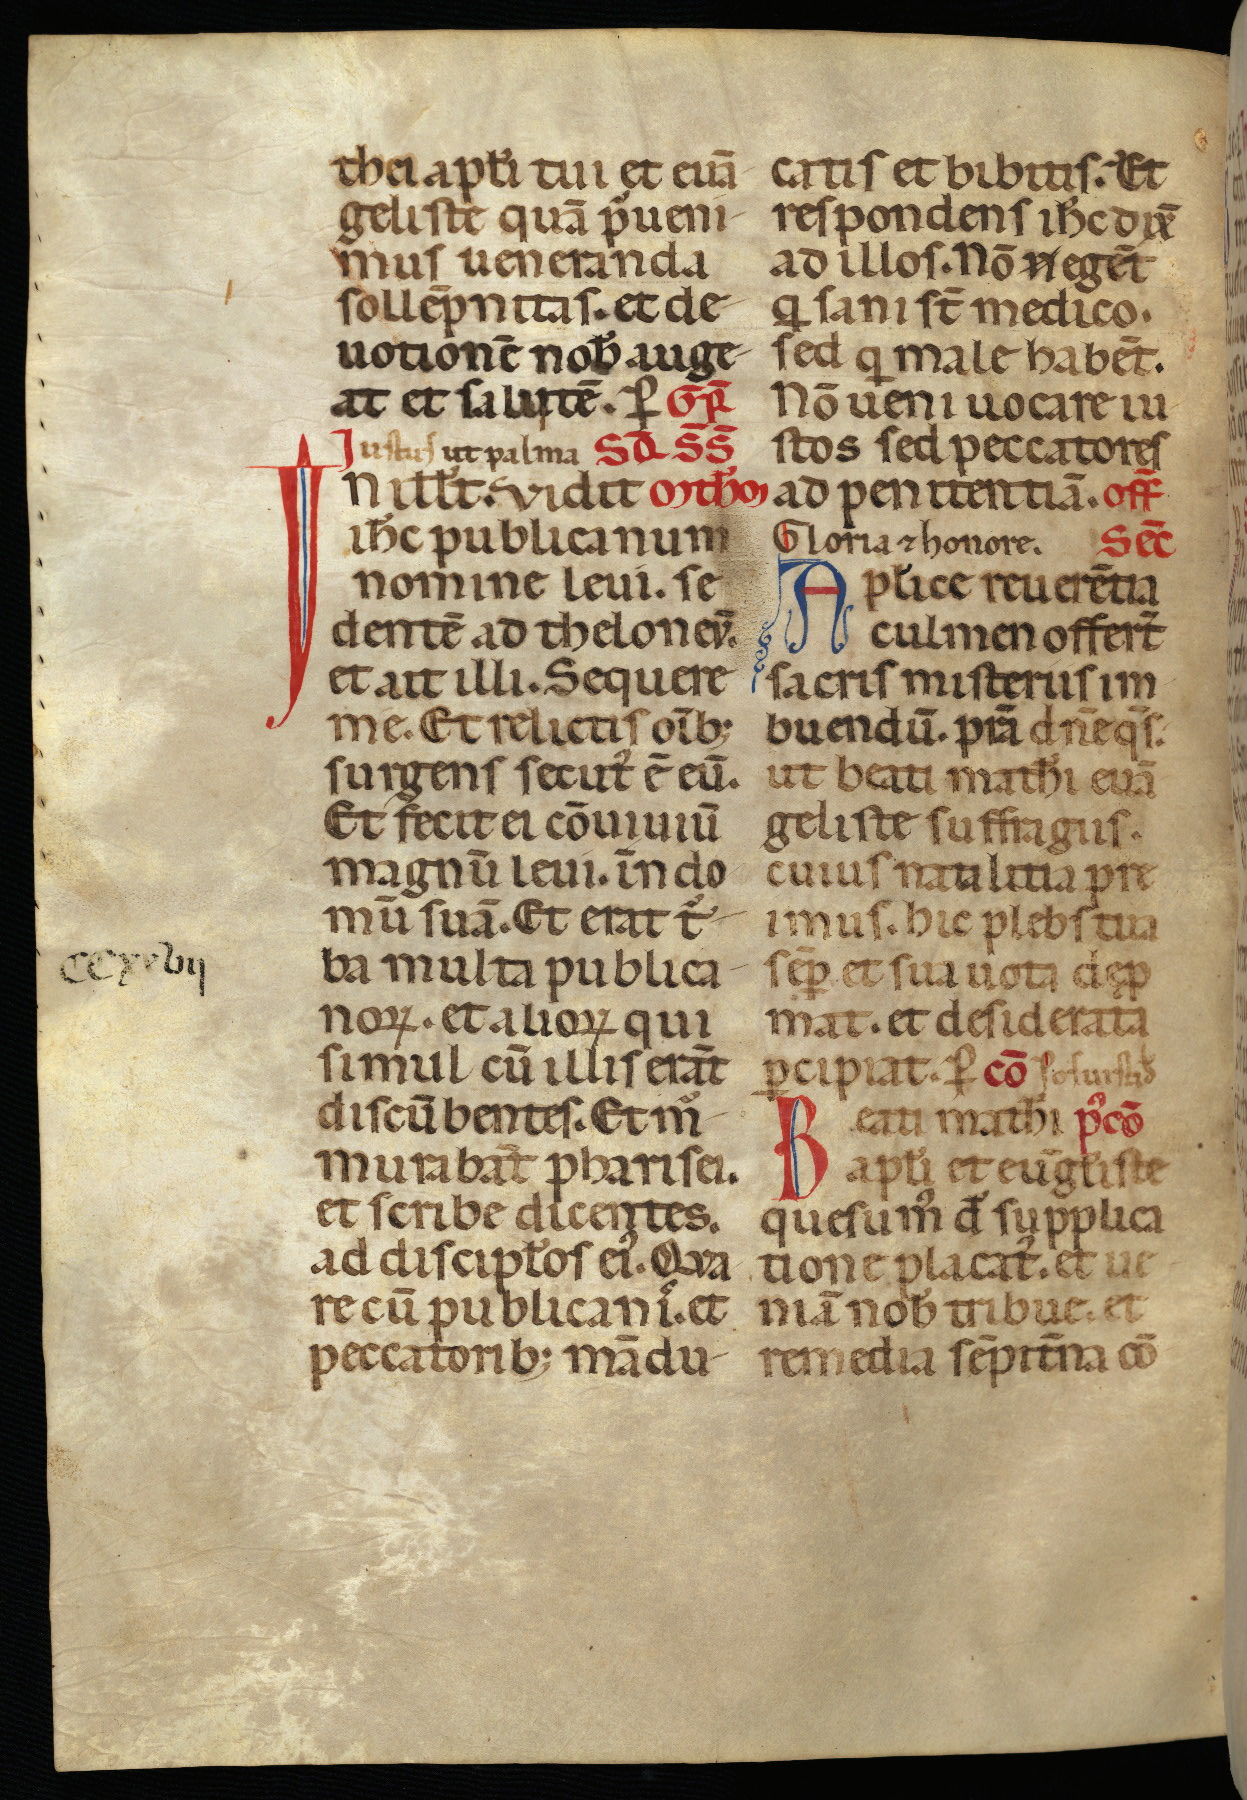 thei apłi tui et euā
geliste quā p̄ueni
mus ueneranda
sollēpnitas. et de
uotionē nob̄ auge
at et salutē. ꝑ Gr̄
Justus ut palma SD̄ S̄S̄
N ill̄t. Vidit
ih̄c publicanum
nomine leui. se
dentē ad theloneū.
et ait illi. Sequere
me. Et relictis oīb;
surgens secut᾽ ē eū.
Et fecit ei cōuiuiū
magnū leui. in do
mū suā. Et erat t᾽
CCxcvij
ba multa publica
noꝝ. et alioꝝ qui
simul cū illis erāt
discūbentes. Et m᾽
murabāt pharisei.
et scribe dicentes.
ad discipłos ei᾽. Qua
re cū publicanis. et
peccatorib; mādu
catis et bibitis. Et
respondens ih̄c dix̄
ad illos. Nō egēt
q sani st̄ medico.
sed q male habēt.
Nō ueni uocare iu
stos sed peccatores
ad penitentiā. off̄
Gloria ⁊ honore. Sec̄
Apłice reuerētia
culmen offert̄
sacris misteriis im
buendū. prā dn̄e qs̄.
ut beati mathi euā
geliste suffragiis.
cuius natalitia pre
imus. hic plebs tua
sēp et sua uota dep
mat. et desiderata
ꝑcipiat. ꝑ cō
Beati mathi p᾽cō
apłi et euḡłiste
quesum᾽ d̄ supplica
tione placat᾽. et ue
niā nob̄ tribue. et
remedia sēpit̄na cō